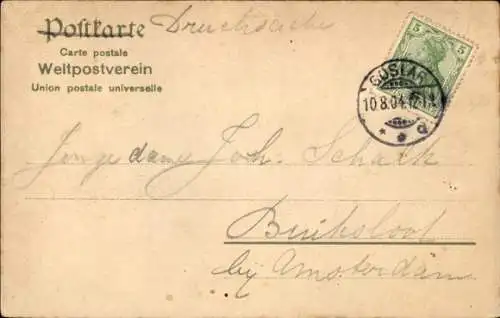 Postkarte Drucksache
Carte postale
Weltpostverein
Union postale universelle
5 5
GOSLAR
10.8.04.
Jonge dame Joh. Schalk
Buiksloot
bij Amsterdam